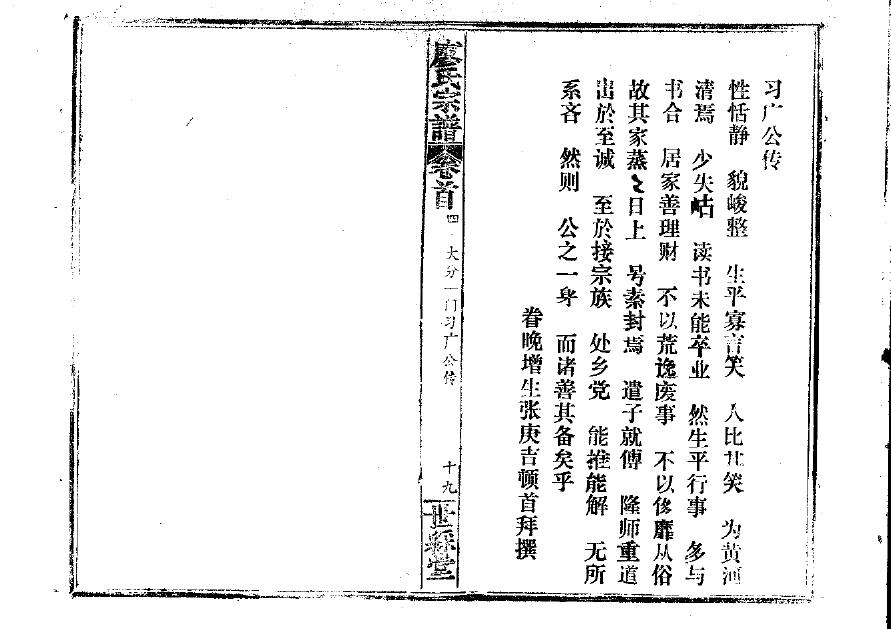 习广公传
性恬静 貌峻整 生平寡言笑 人比其笑 为黄河
清焉 少失岵 读书未能卒业 然生平行事 多与
书合 居家善理财 不以荒逸废事 不以侈靡从俗
故其家蒸々日上 号素封焉 遣子就傅 隆师重道
出於至诚 至於接宗族 处乡党 能推能解 无所
系吝 然则 公之一身 而诸善其备矣乎
眷晚增生张庚吉顿首拜撰
廖氏宗譜 卷首 四 大分一门习广公传 十九 世綵堂